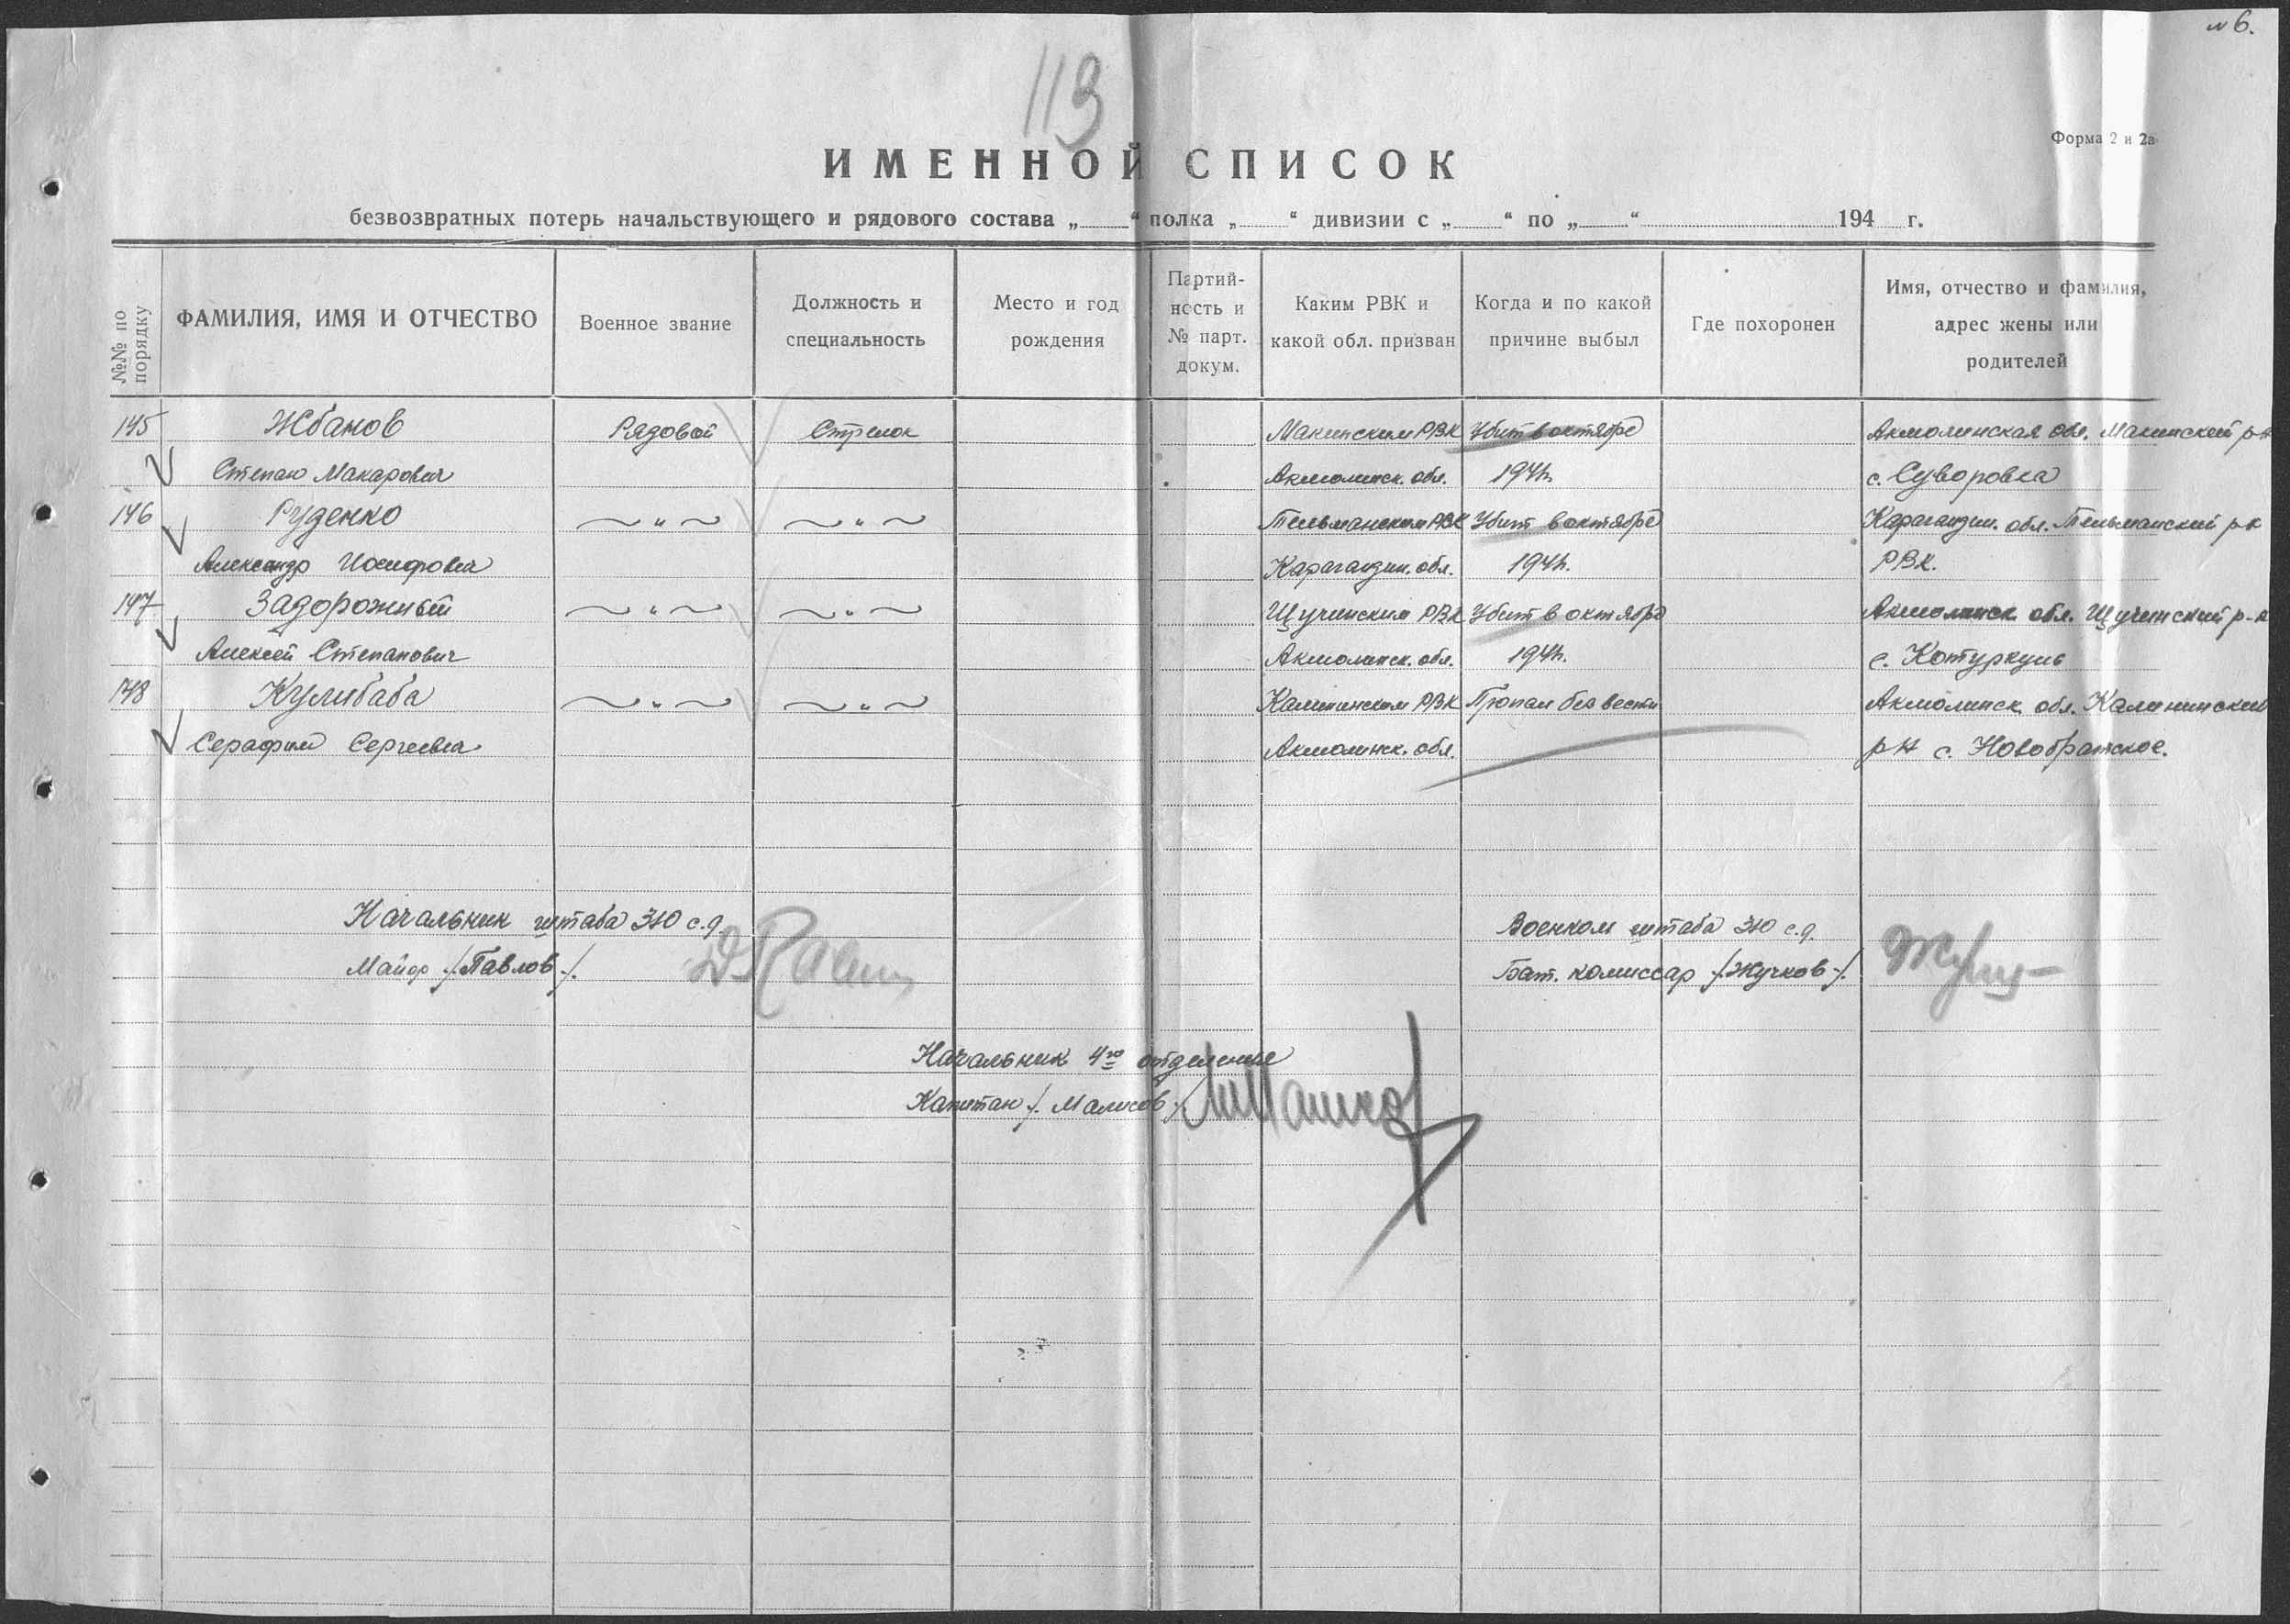 № 6.
113
Форма 2 и 2а
ИМЕННОЙ СПИСОК
безвозвратных потерь начальствующего и рядового состава „ “ полка „ “ дивизии с „ “ по „ “ 194 г.
№№ по порядку
ФАМИЛИЯ, ИМЯ И ОТЧЕСТВО
Военное звание
Должность и специальность
Место и год рождения
Партийность и № парт. докум.
Каким РВК и какой обл. призван
Когда и по какой причине выбыл
Где похоронен
Имя, отчество и фамилия, адрес жены или родителей
145 Жбанов Рядовой Стрелок Макинским РВК Убит в октябре Акмолинская обл. Макинский р-н
Степан Макарович Акмолинск. обл. 1941г. с. Суворовка
146 Руденко ~ " ~ ~ " ~ Тельманским РВК Убит в октябре Карагандин. обл. Тельманский р-н
Александр Иосифович Карагандин. обл. 1941г. РВК.
147 Задорожный ~ " ~ ~ " ~ Щучинским РВК Убит в октябре Акмолинск. обл. Щучинский р-н
Алексей Степанович Акмолинск. обл. 1941г. с. Котуркуль
148 Кулибаба ~ " ~ ~ " ~ Калининским РВК Пропал без вести Акмолинск. обл. Калининский
Серафим Сергеевич Акмолинск. обл. р-н с. Новобратское.
Начальник штаба 310 с.д. Военком штаба 310 с.д.
Майор /Павлов/. Бат. комиссар /Жучков/.
Начальник 4го отделения
Капитан /